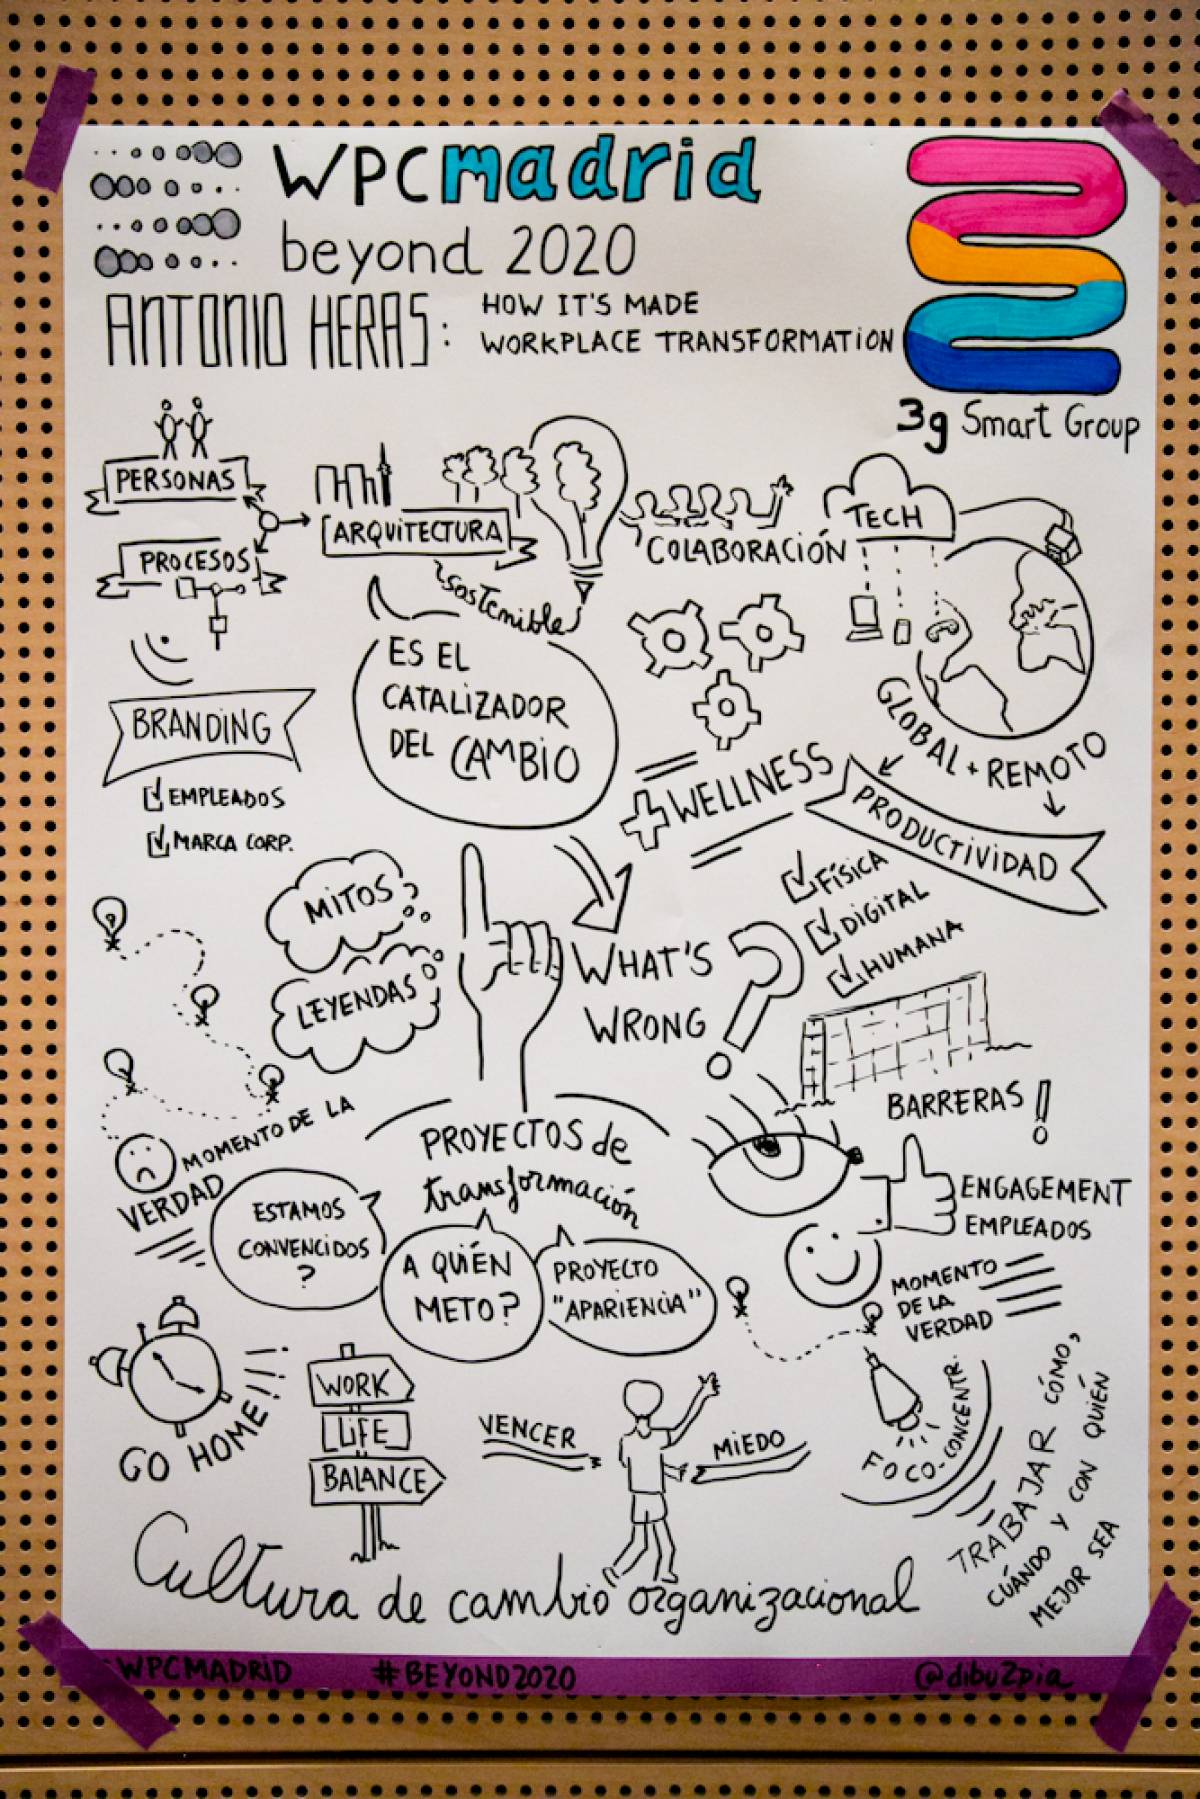 WPCmadrid
beyond 2020
ANTONIO HERAS:
HOW IT'S MADE
WORKPLACE TRANSFORMATION
3g Smart Group
PERSONAS
PROCESOS
ARQUITECTURA
sostenible
COLABORACIÓN
TECH
GLOBAL + REMOTO
BRANDING
EMPLEADOS
MARCA CORP.
ES EL
CATALIZADOR
DEL CAMBIO
+ WELLNESS
PRODUCTIVIDAD
FÍSICA
DIGITAL
HUMANA
MITOS
LEYENDAS
WHAT'S
WRONG ?
BARRERAS!
MOMENTO DE LA
VERDAD
PROYECTOS de
transformación
ESTAMOS
CONVENCIDOS
?
A QUIÉN
METO?
PROYECTO
"APARIENCIA"
ENGAGEMENT
EMPLEADOS
MOMENTO
DE LA
VERDAD
GO HOME!!!
WORK
LIFE
BALANCE
VENCER
MIEDO
FOCO-CONCENTR.
TRABAJAR CÓMO,
CÚANDO Y CON QUIÉN
MEJOR SEA
Cultura de cambio organizacional
#WPCMADRID
#BEYOND2020
@dibu2pia